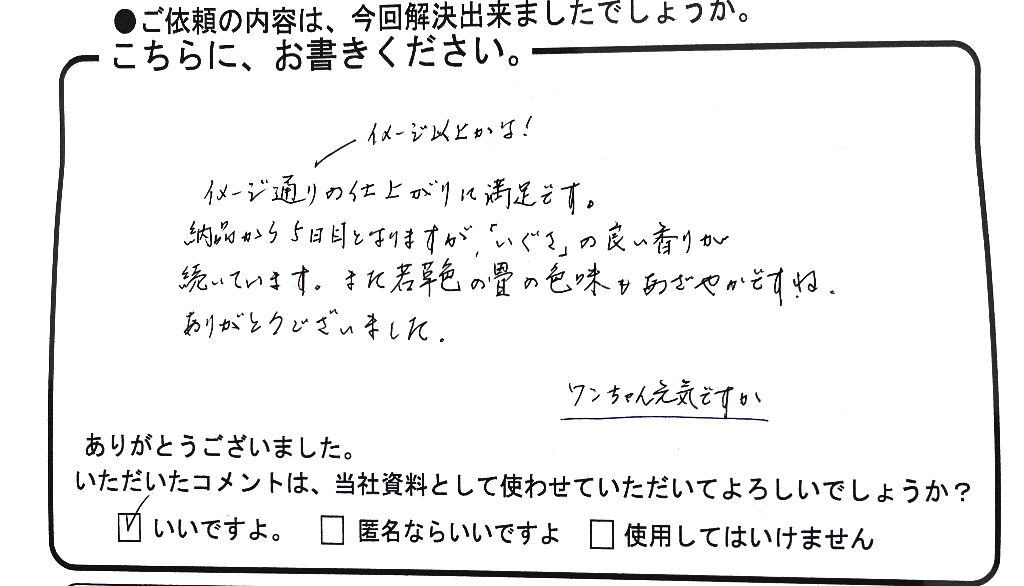 ●ご依頼の内容は、今回解決出来ましたでしょうか。
こちらに、お書きください。
イメージ以上かな!
イメージ通りの仕上がりに満足です。
納品から5日目となりますが、「いぐさ」の良い香りが
続いています。また若草色の畳の色味もあざやかですね.
ありがとうございました.
ワンちゃん元気ですか
ありがとうございました。
いただいたコメントは、当社資料として使わせていただいてよろしいでしょうか?
☑ いいですよ。 □ 匿名ならいいですよ □ 使用してはいけません